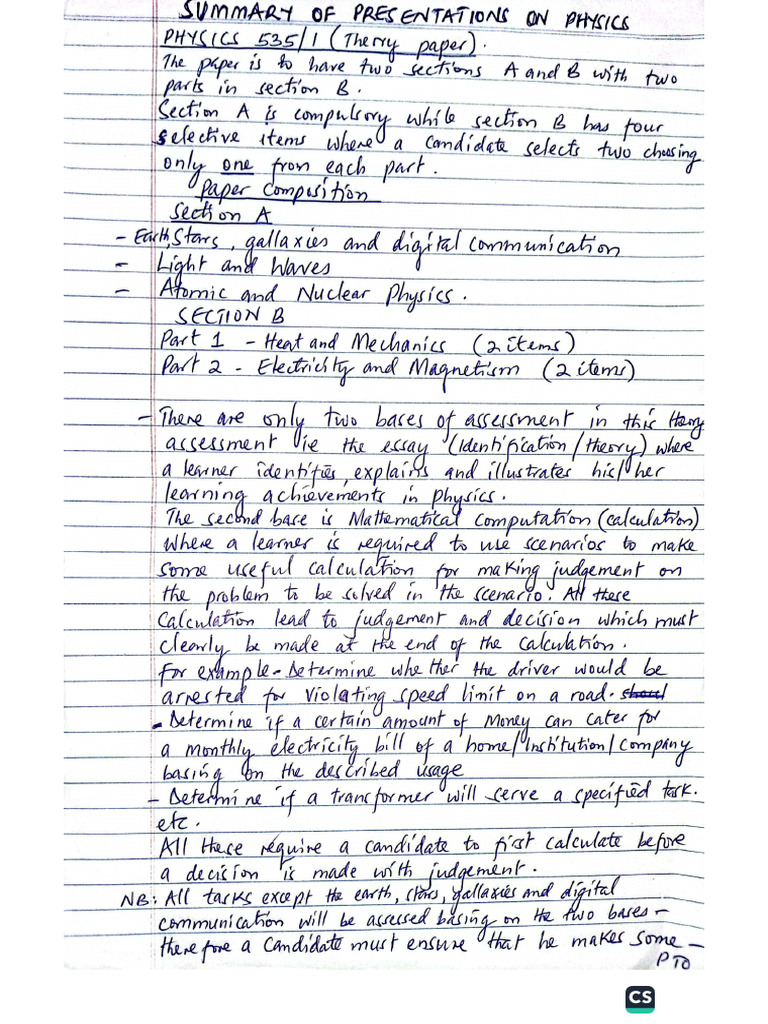 SUMMARY OF PRESENTATIONS ON PHYSICS
PHYSICS 535/1 (Therry paper).
The paper is to have two sections A and B with two
parts in section B.
Section A is compulsory while section B has four
selective items where a candidate selects two choosing
only one from each part.
Paper Composition
Section A
- Earth, Stars, gallaxies and digital communication
- Light and Waves
- Atomic and Nuclear Physics.
SECTION B
Part 1 - Heat and Mechanics (2 items)
Part 2 - Electricity and Magnetism (2 items)
- There are only two bases of assessment in this therry
assessment ie the essay (Identification/theory) where
a learner identifies, explains and illustrates his/her
learning achievements in physics.
The second base is Mathematical computation (calculation)
where a learner is required to use scenarios to make
some useful calculation for making judgement on
the problem to be solved in the scenario. All these
calculation lead to judgement and decision which must
clearly be made at the end of the calculation.
For example - Determine whether the driver would be
arrested for violating speed limit on a road.
- Determine if a certain amount of money can cater for
a monthly electricity bill of a home/institution/company
basing on the described usage
- Determine if a transformer will serve a specified task.
etc.
All these require a candidate to first calculate before
a decision is made with judgement.
NB: All tasks except the earth, stars, gallaxies and digital
communication will be assessed basing on the two bases -
therefore a candidate must ensure that he makes some -
PTO
CS